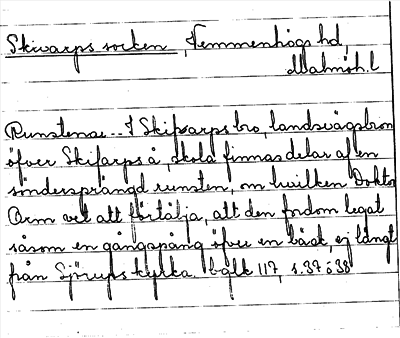 Skivarps socken, Vemmenhögs hd,
Malmöh. l
Runstenar.. I Skifvarps bro, landsvägsbron
öfver Skifarps å, skola finnas delar af en
söndersprängd runsten, om hvilken Doktor
Orm vet att förtälja, att den fordom legat
såsom en gångspång öfver en bäck, ej långt
från Sjörups kyrka. balk 117, s. 37 o 38